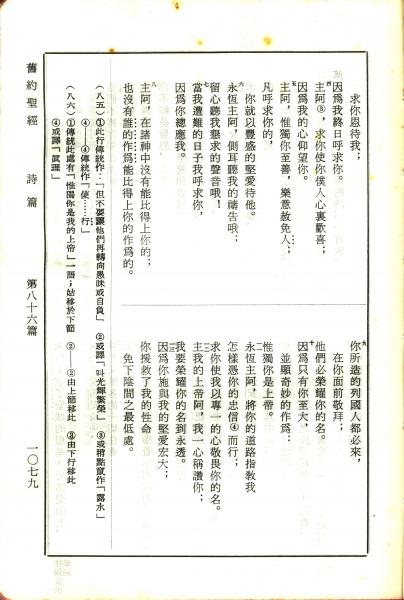 求你恩待我；
因爲我終日呼求你。
四主阿③，求你使你僕人心裏歡喜；
因爲我的心仰望你。
五主阿，惟獨你至善，樂意赦免人；
凡呼求你的，
你就以豐盛的堅愛待他。
六永恆主阿，側耳聽我的禱告哦；
留心聽我懇求的聲音哦！
七當我遭難的日子我呼求你，
因爲你總應我。
八主阿，在諸神中沒有能比得上你的；
也沒有誰的作爲能比得上你的作爲的。
九你所造的列國人都必來，
在你面前敬拜；
他們必榮耀你的名。
十因爲只有你至大，
並顯奇妙的作爲：
惟獨你是上帝。
十一永恆主阿，將你的道路指教我，
怎樣憑你的忠信④而行；
求你使我以專一的心敬畏你的名。
十二主我的上帝阿，我一心稱讚你；
我要榮耀你的名到永遠。
十三因爲你施與我的堅愛宏大；
你援救了我的性命
免下陰間之最低處。
（八五）①此行傳統作：「但不要讓他們再轉向愚昧或自負」 ②或譯「叫光輝繁榮」 ③或稍點竄作「露水」
④——④傳統作「使……行」
（八六）①傳統此處有「惟獨你是我的上帝」一語；姑移於下節 ②——②由上節移此 ③由下行移此
④或譯「眞理」
舊約聖經 詩篇 第八十六篇 一〇七九